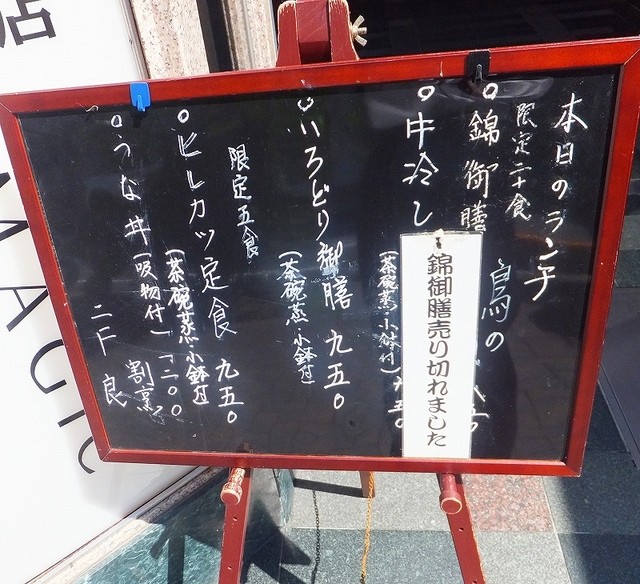 本日のランチ
限定二十食
錦御膳
鳥の
牛冷し
(茶碗蒸・小鉢付)
錦御膳売り切れました
いろどり御膳 九五〇
(茶碗蒸・小鉢付)
限定五食
ヒレカツ定食 九五〇
(茶碗蒸・小鉢付)
うな丼(吸物付) 一二〇〇
割烹
二F 良
店
MAGIC